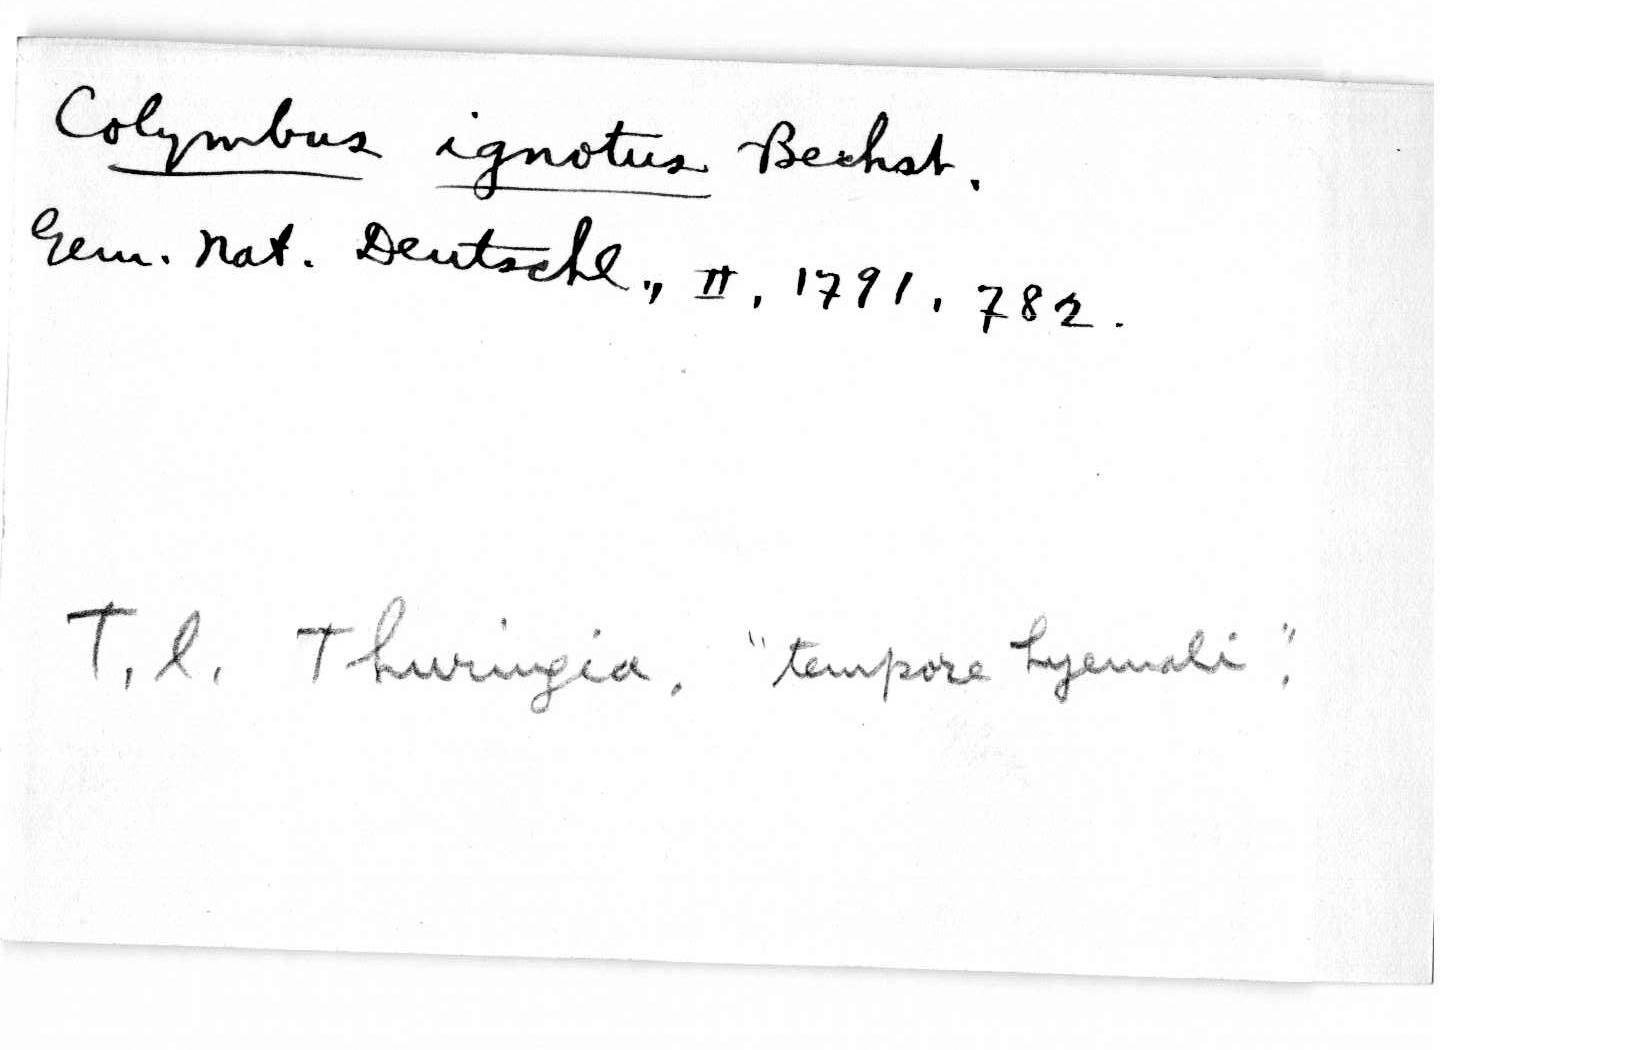 Colymbus ignotus Bechst.
Gem. Nat. Deutschl., II, 1791, 782.
T. l. Thuringia, "tempore hyemali".